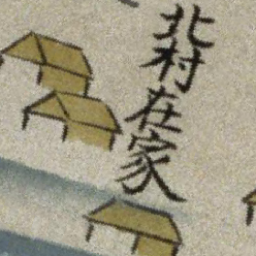 北村在家